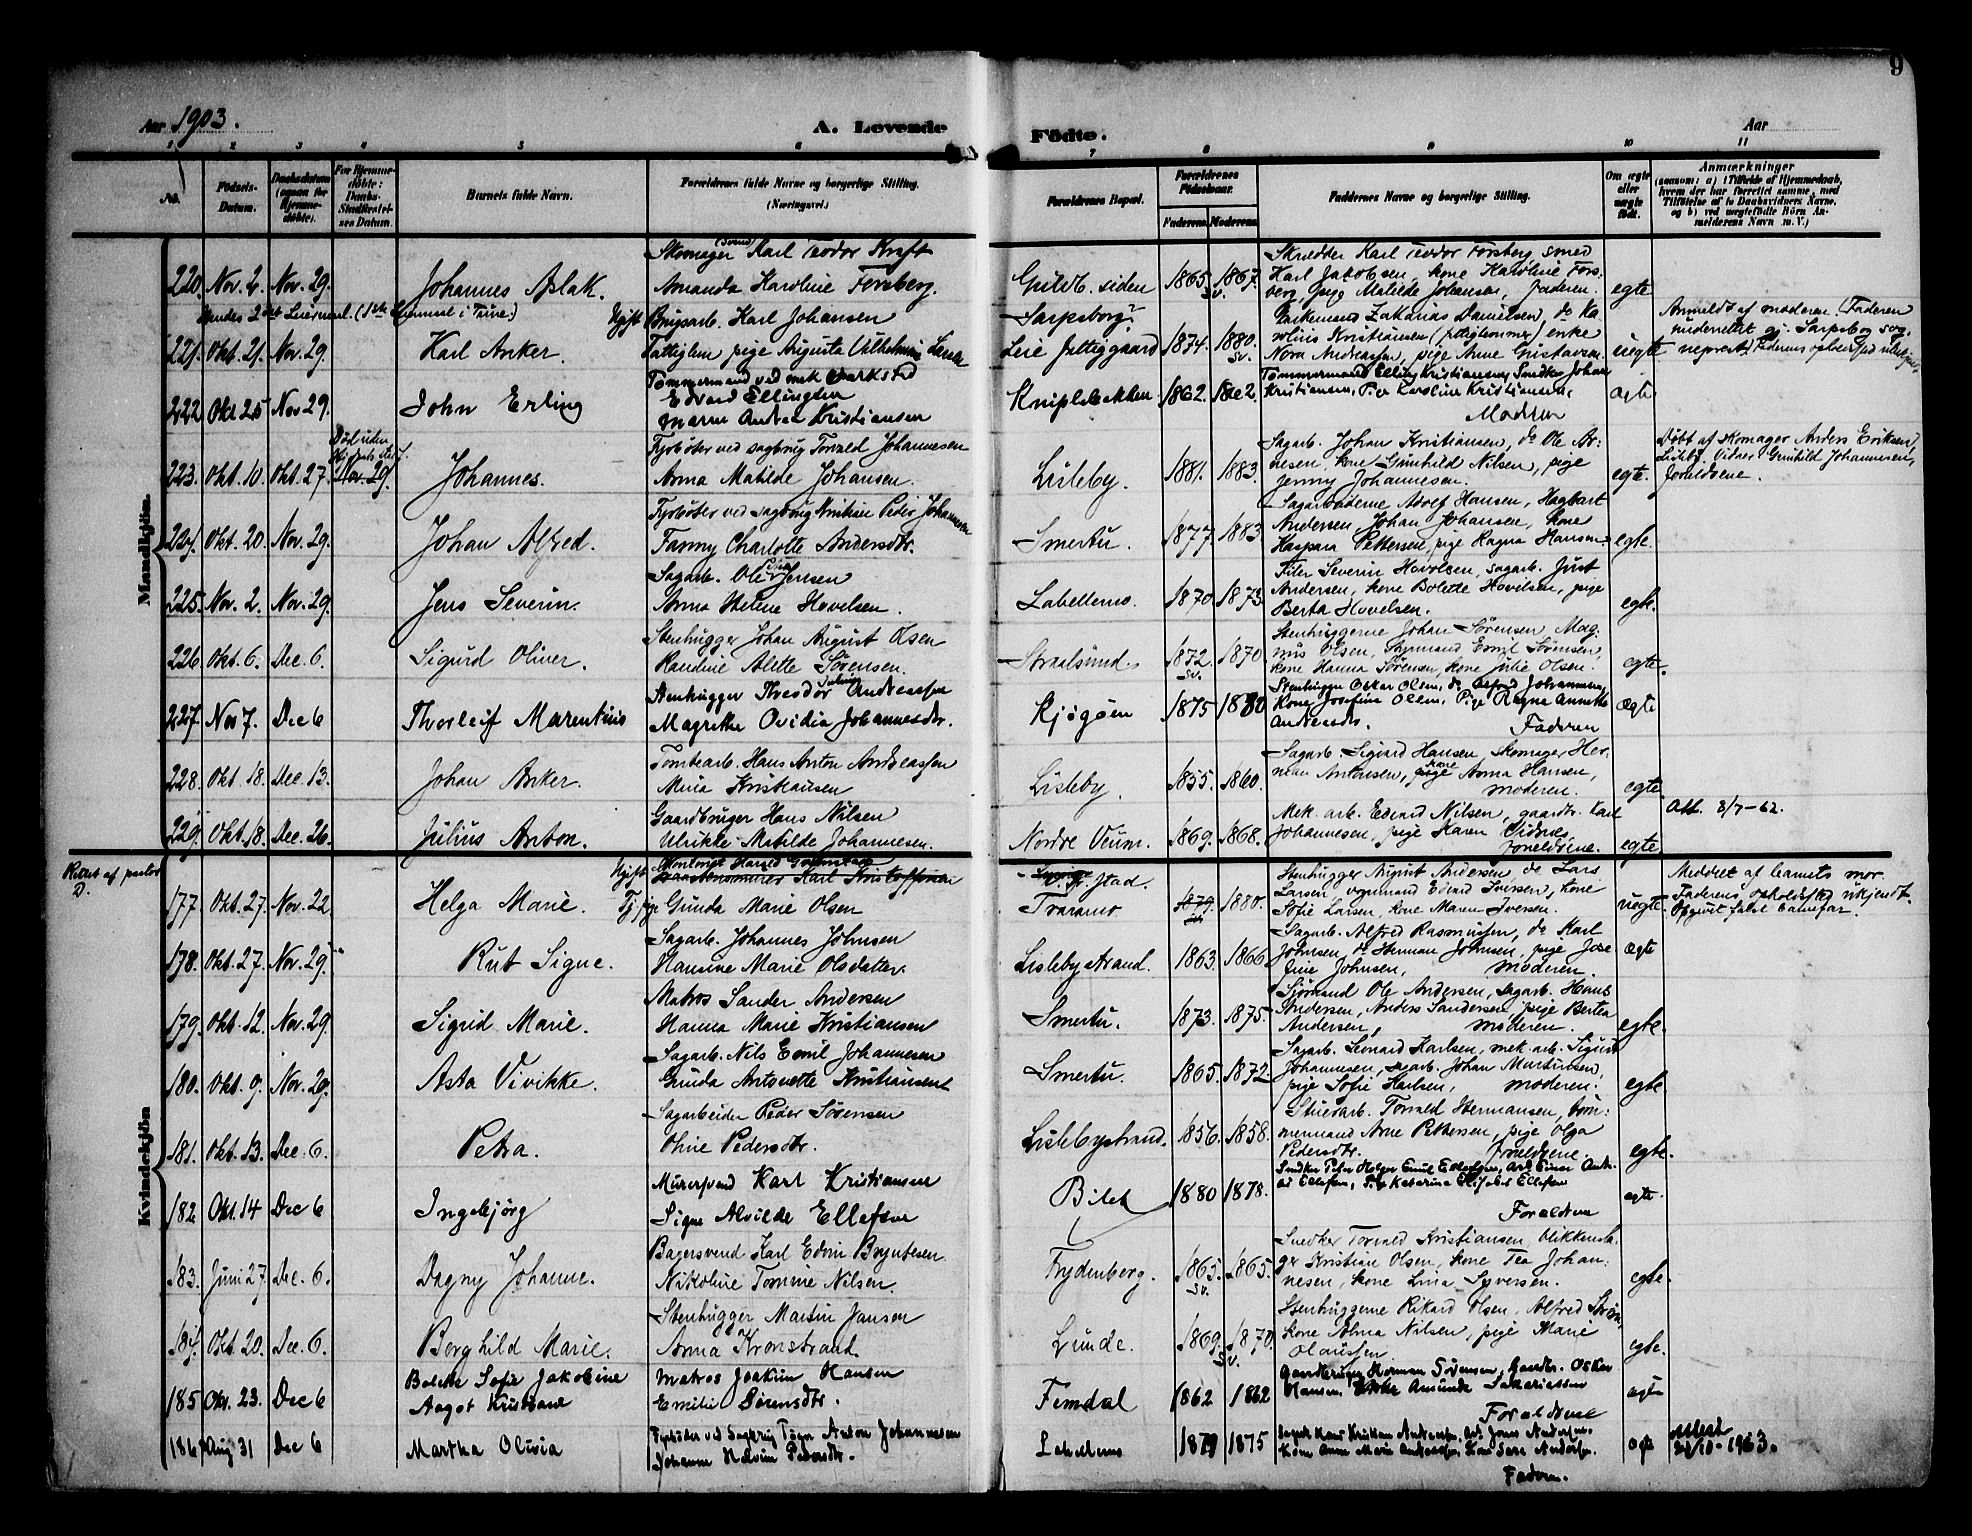 9
Aar 1903.
A. Levende
Födte.
Aar
1 2 3 4 5 6 7 8 9 10 11
No.
Födsels-Datum.
Daabsdatum (ogsaa for Hjemmedöbte).
For Hjemmedöbte: Daabs-Stadfæstelsens Datum.
Barnets fulde Navn.
Forældrenes fulde Navne og borgerlige Stilling.
(Næringsvei.)
Forældrenes Bopæl.
Forældrenes Födselsaar.
Faderens Moderens
Faddernes Navne og borgerlige Stilling.
Om ægte eller uægte födt.
Anmærkninger
(saasom: a) i Tilfælde af Hjemmedaab, hvem der har forrettet samme, med Tilföielse af to Daabsvidners Navne, og b) ved uægtefödte Börn Anmelderens Navn m. V.)
Mandkjön.
Skomager (Svend) Karl Teodor Kraft
220. Nov. 2. Nov. 29. Johannes Aslak.
Amanda Karoline Forsberg.
Guldb. siden 1865 sv. 1867.
Skrædder Karl Teodor Forsberg, smed
Karl Jakobsen, kone Karoline Forsberg, pige Matilde Johansen, Faderen. egte
Ugift Brugsarb. Karl Johansen
221. Okt. 21. Nov. 29. Karl Anker.
Fattiglem pige Augusta Vilhelmine
Sarpsborg
Leie Fattiggaard 1874. 1880. sv.
Zakarias Danielsen, do Karolius Kristiansen (fattiglemmer) enke
Nora Andreassen, pige Anne Gustavsen uegte
Anmeldt af moderen. (Faderen
underrettet gj. Sarpsborg sogneprest)
222 Okt 25 Nov 29. John Erling
Tømmermand ved mek Verksted
Edvard Ellingsen
Maren Andrea Kristiansen
Kniplebakken 1862. 1862.
Tømmermand Elling Kristiansen, Snedker Johan
Kristiansen, Pige Karoline Kristiansen,
Modren
ægte
223. Okt. 10. Okt. 27. Nov. 29. Johannes.
Fyrbøter ved sagbrug Torvald Johannesen
Anna Matilde Johansen.
Lisleby. 1881. 1883.
Sagarb. Johan Kristiansen, do Ole Arnesen, kone Gunhild Nilsen, pige
Jenny Johannesen. egte.
Døbt af skomager Anders Eriksen,
Lisleby. Vidner Gunhild Johannesen,
forældrene.
224. Okt. 20. Nov. 29. Johan Alfred.
Fyrbøter ved sagbrug Kristian Peder Johannesen
Fanny Charlotte Andersdtr.
Smertu. 1877. 1883.
Sagarbeiderne Adolf Hansen, Hagbart
Andersen, Johan Johansen, kone
Kaspara Pettersen, pige Ragna Hansen. egte.
225. Nov. 2. Nov. 29. Jens Severin.
Sagarb. Ole Jensen
Anna Helene Hovelsen.
Labellemo. 1870 1873.
Filer Severin Hovelsen, sagarb. Just
Andersen, kone Bolette Hovelsen, pige
Berta Hovelsen. egte.
226. Okt. 6. Dec. 6. Sigurd Oliver.
Stenhugger Johan August Olsen
Randine Alette Sørensen.
Straalsund. 1872. sv. 1870
Stenhuggerne Johan Sørensen Magnus Olsen, Emil Sørensen,
kone Hanna Sørensen, kone Julie Olsen. egte.
227. Nov 7. Dec 6 Thorleif Marentius
Stenhugger Theodor Andreassen
Magrethe Ovidia Johannesdtr.
Kjøgøen 1875 1880
Stenhugger Oskar Olsen, do Alfred Johannesen,
Kone Josefine Olsen, Pige Ragna Annette
Andersdtr. Faderen Ægte
228. Okt. 18. Dec. 13. Johan Anker.
Tomtearb. Hans Anton Andreassen
Mina Kristiansen
Lisleby. 1855. 1860.
Sagarb. Sigvard Hansen, skomager Herman Antonsen, kone Anna Hansen,
moderen. egte.
229. Okt. 18. Dec. 26. Julius Anton.
Gaardbruger Hans Nilsen
Ulrikke Matilde Johannesen.
Nordre Veum. 1869. 1868.
Mek. arb. Edvard Nilsen, gaardbr. Karl
Johannesen, pige Karen
forældrene. egte
Att. 8/7-62.
Kvindekjön
Rettet af pastor
D.
177. Okt. 27. Nov. 22 Helga Marie.
Ugift Karl Kristoffersen
Tj. pige Gunda Marie Olsen
Traramo 1879. 1880.
Stenhugger August Andersen, do Lars
Larsen, vognmand Edvard Iversen, kone
Sofie Larsen, kone Maren Iversen. uegte.
Meddelt af barnets mor.
Faderens opholdssted ukjendt.
Opgivet falsk barnefar.
178. Okt. 27. Nov. 29. Rut Signe.
Sagarb. Johannes Johnsen
Hansine Marie Olsdatter.
Lislebystrand. 1863. 1866
Sagarb. Alfred Rasmussen, do Karl
Johnsen, do Herman Johnsen, pige Josefine Johnsen, moderen. ægte
179. Okt. 12. Nov. 29. Sigrid Marie.
Matros Sander Andersen
Hanna Marie Kristiansen
Smertu. 1873. 1875.
Sjømand Ole Andersen, sagarb. Hans
Andersen, Anders Sandersen, pige Berta
Andersen, moderen. egte.
180. Okt. 9. Nov. 29. Asta Vivikke.
Sagarb. Nils Emil Johannesen
Gunda Antonette Kristiansen
Smertu. 1865. 1872.
Sagarb. Leonard Karlsen, mek. arb. Sigurd
Johannesen, sagarb. Johan Martinsen,
pige Sofie Karlsen, moderen. egte.
181. Okt. 13. Dec. 6. Petra.
Sagarbeider Peder Sørensen
Oline Pedersdtr.
Lislebystrand. 1856. 1858.
Stuearb. Torvald Hermansen, tømmermand Arne Pettersen, pige Olga
Pedersdtr. forældrene. egte.
182 Okt. 14 Dec 6 Ingebjørg
Murersvend Karl Kristiansen
Signe Alvilde Ellefsen
Bilet 1880 1878.
Snedker Peter Holger Emil Ellefsen, Arb Einar Andreas Ellefsen, Pige Katarina Elisabet Ellefsen
Forældrene ægte.
183. Juni 27. Dec. 6. Dagny Johanne.
Bagersvend Karl Edvin Bryntesen
Nikoline Tomine Nilsen.
Frydenberg. 1865. sv. 1865.
Snedker Torvald Kristiansen, blikkenslager Kristian Olsen, kone Tea Johannesen, kone Lina Syversen. egte.
184. Okt. 20. Dec. 6. Borghild Marie.
Stenhugger Martin Jansen
Anna Kronstrand.
Lunde. 1869. sv. 1870.
Stenhuggerne Rikard Olsen, Alfred Strøm,
kone Alma Nilsen, pige Marie
Olaussen. egte.
185 Okt. 23. Dec 6
Bolette Sofie Jakobine
Aagot Kristiane
Matros Joakim Hansen
Emilie Sørensdtr.
Femdal 1862 1862
Gaardbruger Herman Sørensen, Gaardbr. Oskar
Hansen, Enke Amunda Sakariassen
Forældrene ægte
186 Aug 31 Dec 6 Martha Olivia
Fyrbøder ved Sagbrug Thor Anton Johannesen
Johanne Helvine Pedersdtr.
Labellemo 1879 1875
Kristian Andersen, Arb Jens Andersen,
Kone Anne Marie Andersen, Kone Sara Andersen
Faderen. ægte
Attest
24/10-1963.